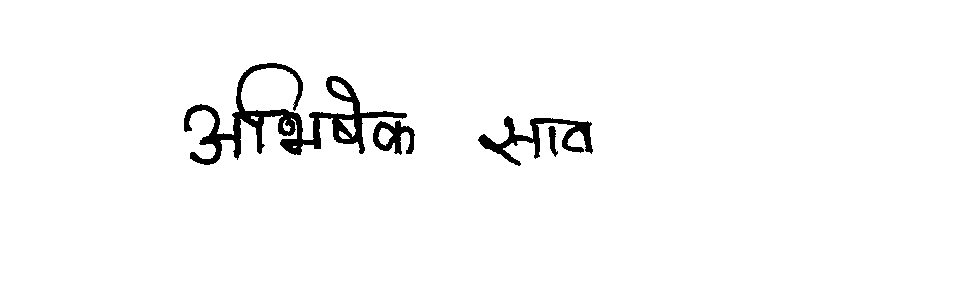 अभिषेक साव